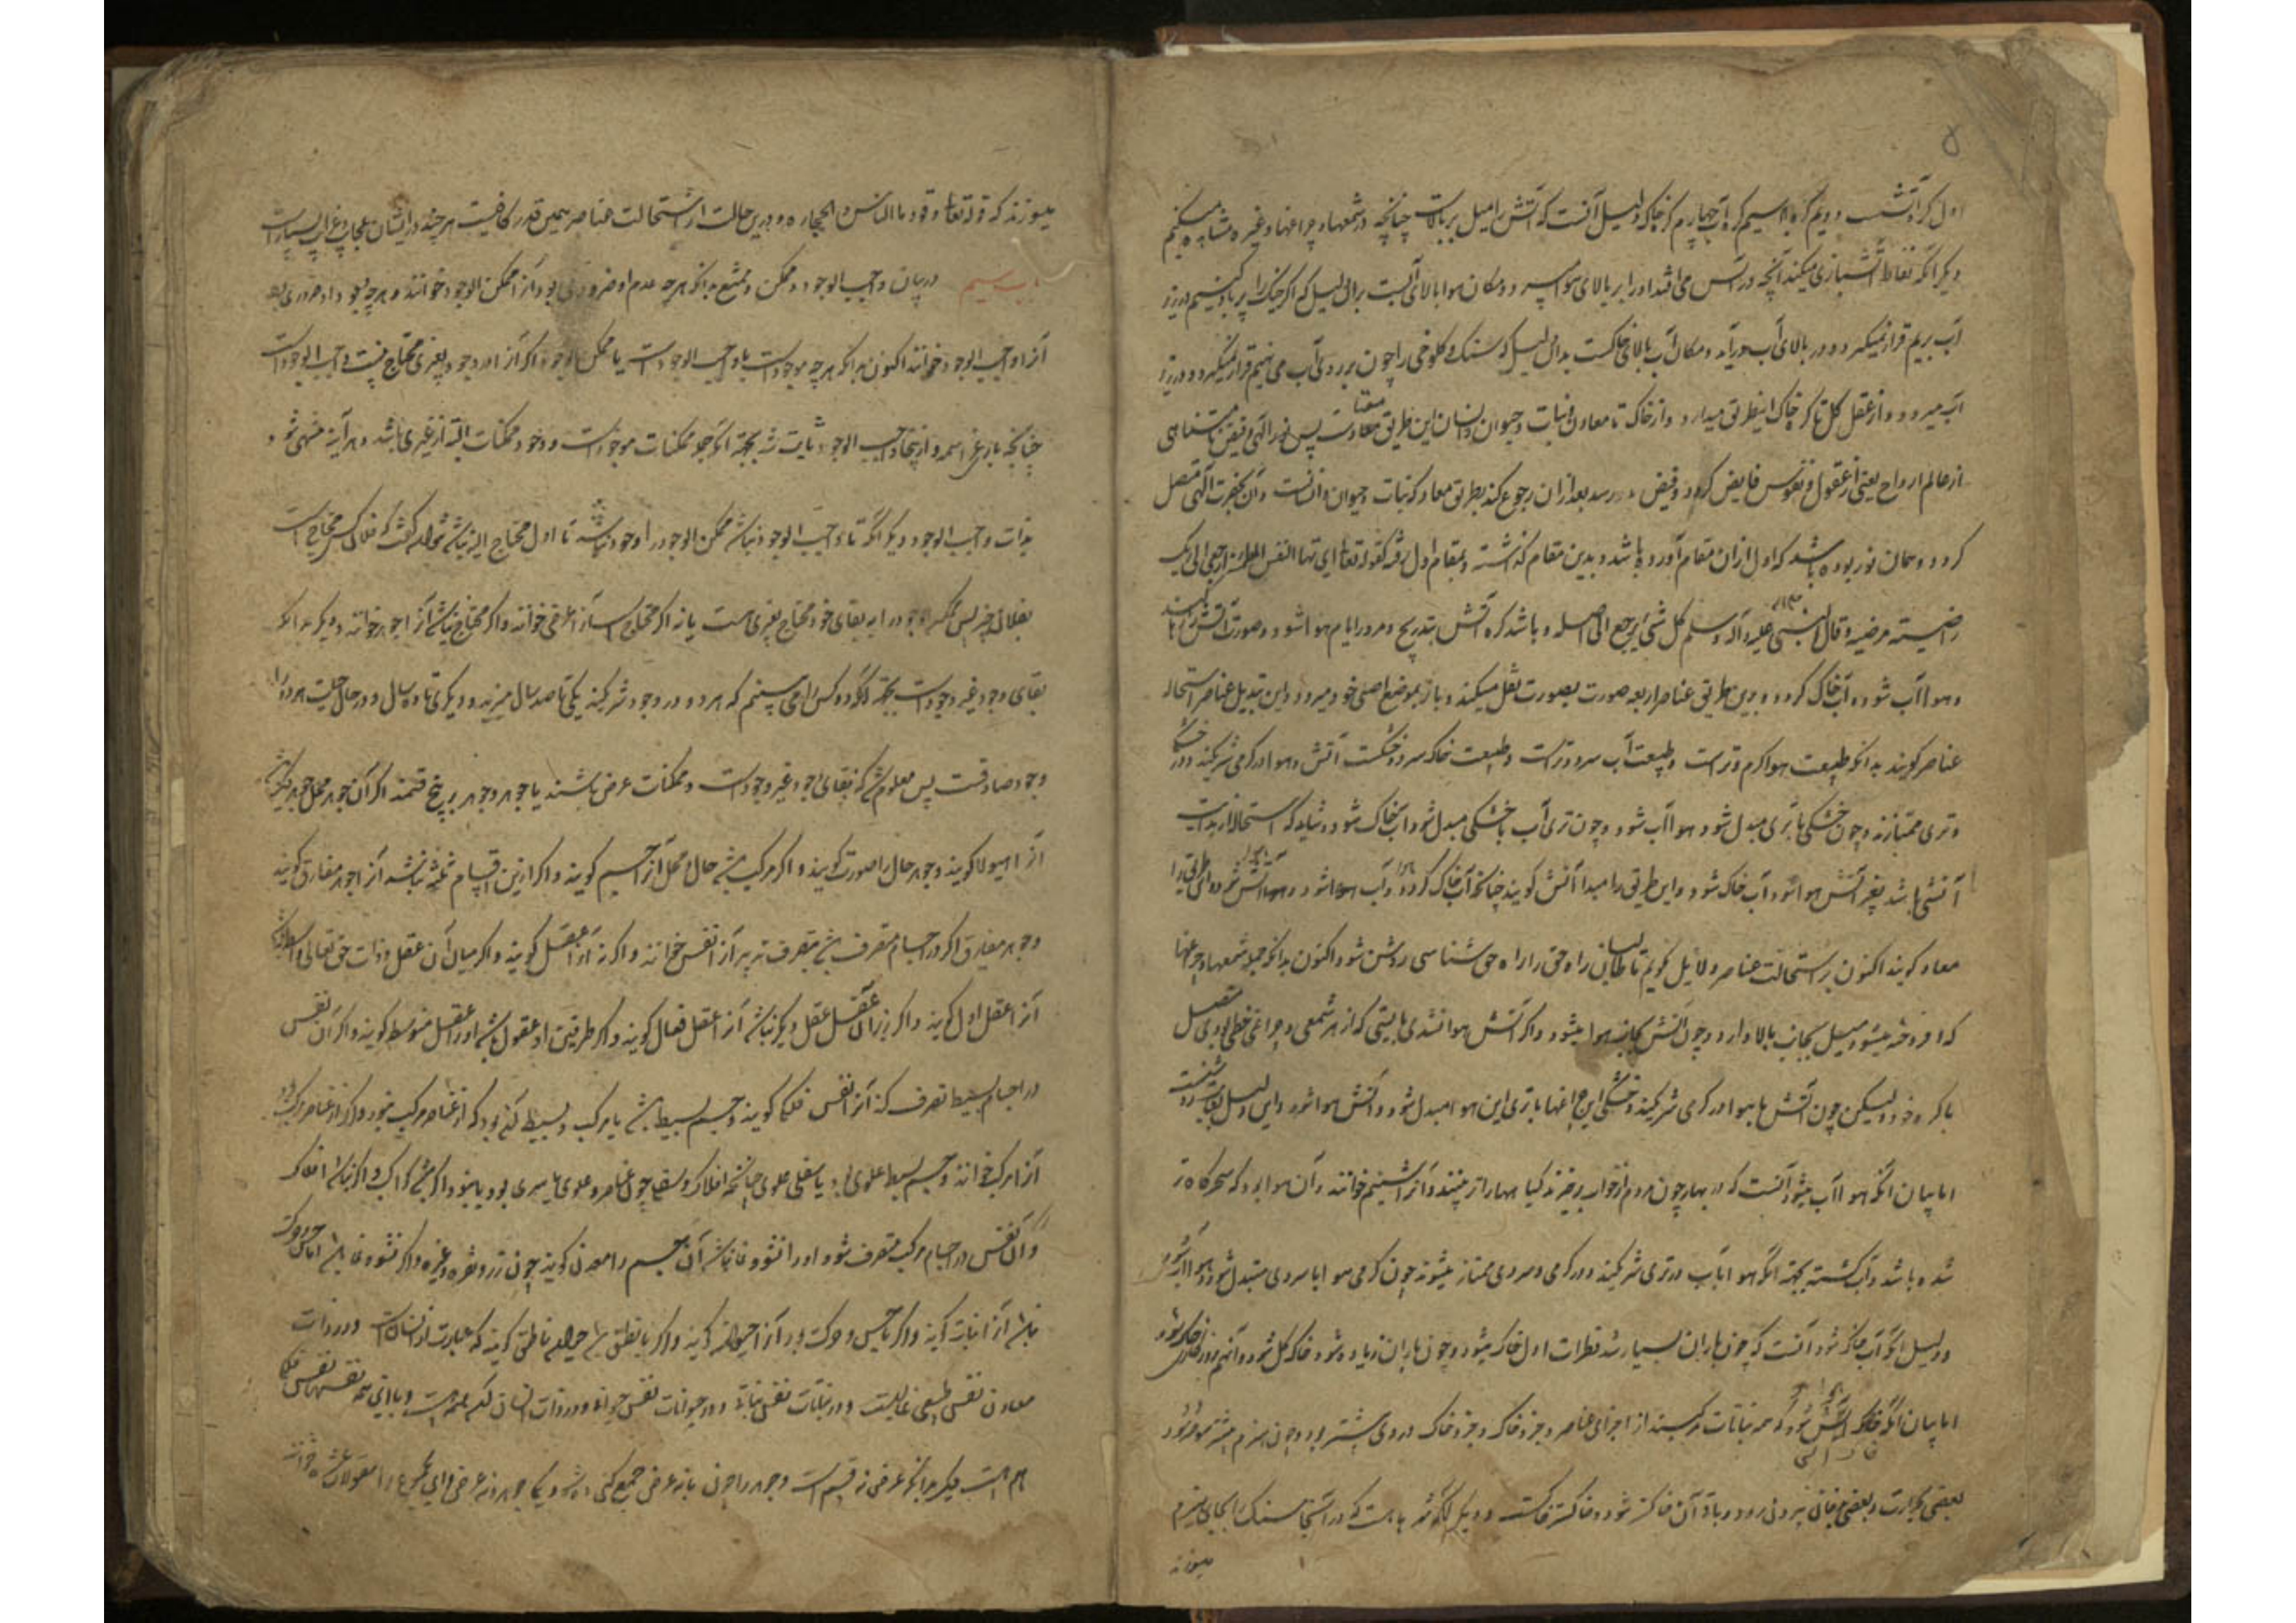 اول کره آتش دویم کره هوا سیم کره آب چهارم کره خاک و دلیل آنست که آتش را میل ببالاست چنانچه در شمعها و چراغها و غیره مشاهده میکنیم
دیگر آنکه نفاط آتشبازی میکند آنچه در آتش می افتد او را ببالای هوا میبرد و مکان هوا بالای آبست بدان دلیل که اگر خیک را پر باد کنیم و در زیر
آب بریم قرار نمیگیرد و بر بالای آب می آید و مکان آب بالای خاکست بدان دلیل که سنک و کلوخی را چون بر روی آب می نهیم قرار نمیگیرد و در زیر
آب میرود و از عقل کل تا کره خاک اینطریق میدارد و از خاک تا معادن و نبات و حیوان و انسان این طریق معادست پس نور الهی و فیض نامتناهی
از عالم ارواح یعنی از عقول و نفوس فایض گردد و فیض رسد بعد از آن رجوع کند بطریق معاد که نبات و حیوان و انسانست و آن بحضرت الهی متصل
گردد و همان نور بوده باشد که اول از آن مقام آورده باشد و بدین مقام گذشته و بمقام اول رفته کقوله تعالی یا ایتها النفس المطمئنه ارجعی الی ربک
راضیة مرضیه و قال النبی علیه و آله و سلم کل شئ یرجع الی اصله و باشد که آتش بتدریج و مرور ایام هوا شود و صورت آتش
و هوا آب شود و آب خاک گردد و برین طریق عناصر اربعه صورت بصورت نقل میکند و باز بموضع اصلی خود میرود و این تبدیل عناصر را استحاله
عناصر گویند بدانکه طبیعت هوا گرم و ترست و طبیعت آب سرد و ترست و طبیعت خاک سرد و خشکست آتش و هوا در گرمی شریکند و در خشکی
و تری ممتازند و چون خشکی با تری مبدل شود هوا آب شود و چون تری آب با خشکی مبدل شود آب خاک شود و شاید که استحاله از بدایت
آتشی باشد یعنی آتش هوا شود و آب خاک شود و این طریق را مبدا آتش گویند چنانچه آب خاک گردد و آب هوا شود و هوا آتش شود و این طریق را
معاد گویند اکنون بر استحالت عناصر دلایل گویم تا طالبان راه حق را راه حق شناسی روشن شود اکنون بدانکه جمله شمعها و چراغها
که افروخته میشود میل بجانب بالا دارد و چون آتش بجانب هوا میشود و اگر آتش هوا نشدی بایستی که از هر شمعی و چراغی خطی بودی متصل
با کره خود و لیکن چون آتش با هوا در گرمی شریکند و خشکی این چراغها با تری این هوا مبدل شود و آتش هوا شود و این دلیل
اما بیان آنکه هوا آب میشود آنست که در بهار چون مردم از خواب برخیزند گیاهها را تر بینند و آنرا شبنم خوانند و آن هوا بود که سحرگاه تر
شده باشد و آب گشته بجهة آنکه هوا با آب در تری شریکند و در گرمی و سردی ممتاز میشوند چون گرمی هوا با سردی مبتدل شود هوا آب شود
و دلیل آنکه آب خاک شود آنست که چون باران بسیار شد قطرات اول خاک میشود و چون باران زیاده شود خاک گل شود و آنهم
اما بیان آنکه خاک آتش شود که همه نباتات مرکبند از اجزای عناصر و جزو خاک و جزو خاک در وی بیشتر بود و چون هیزم
بعضی بحرارت و بعضی بدخان بیرون رود و باقی آن خاکستر شود و خاکستر خاکست و دیگر آنکه در آنجا سنک بجای هیزم
میسوزند
میسوزند که قوله تعالی وقودها الناس و الحجاره و درین حالت از استحالت عناصر همین قدر کافیست هر چند در ایشان عجایب و غرایب بسیارست
باب سیم در بیان واجب الوجود و ممکن و ممتنع بدانکه هر چه عدم او ضروری بود آنرا ممکن الوجود خوانند و هر چه وجود او ضروری بود
آنرا واجب الوجود خوانند اکنون بدانکه هر چه موجودست یا واجب الوجودست یا ممکن الوجود اگر آنرا در وجود بغیری محتاج نیست واجب الوجودست
چنانچه باری عز اسمه و از اینجا واجب الوجود ثابت شد بجهة آنکه جمله ممکنات موجودست و وجود ممکنات البته از غیری باشد و هر آینه منتهی شود
بذات واجب الوجود و دیگر آنکه تا واجب الوجود نباشد ممکن الوجود را وجود نباشد تا اول محتاج الیه نباشد نتواند گفت که فلان کس محتاجست
بفلان چیز پس ممکن الوجود را به بقای خود محتاج بغیری هست یا نه اگر محتاج است آنرا عرض خوانند و اگر محتاج نباشد آنرا جوهر خوانند و دیگر بدانکه
بقای وجود غیر وجودست بجهة آنکه دو کس را می بینم که هر دو در وجود شریکند یکی تا صد سال میزید و دیگری تا ده سال و در حال حیات هر دو را
وجود صادقست پس معلوم شد که بقای وجود غیر وجودست و ممکنات عرض باشند یا جوهر و جوهر بر پنج قسمند اگر آن جوهر محل جوهر دیگر باشد
آنرا هیولا گویند و جوهر حال را صورت گویند و اگر مرکب باشد از حال و محل آنرا جسم گویند و اگر ازین اقسام ثلثه نباشد آنرا جوهر مفارق گویند
و جوهر مفارق اگر در اجسام متصرف باشد بتصرف تدبیر آنرا نفس خوانند و اگر نه آنرا عقل گویند و اگر میان آن عقل و ذات حق تعالی واسطه نباشد
آنرا عقل اول گویند و اگر زیر آن عقل عقل دیگر نباشد آنرا عقل فعال گویند و اگر طرفین او عقول باشد او را عقل متوسط گویند و اگر آن نفس
در اجسام بسیط تصرف کند آنرا نفس فلکی گویند و جسم بسیط باشد یا مرکب و بسیط آن بود که از عناصر مرکب نبود و اگر از عناصر مرکب بود
آنرا مرکب خوانند و جسم بسیط علوی بود یا سفلی علوی چنانچه افلاک و سفلی چون عناصر و علوی یا نیر بود یا نبود اگر باشد کواکب و اگر نباشد افلاک
و اگر آن نفس در اجسام مرکب متصرف شود و او را نشو و نما نباشد آن جسم را معدن گویند چون زر و نقره و غیره و اگر نشو و نما باشد اما حس و حرکت
نباشد آنرا نبات گویند و اگر با حس و حرکت بود آنرا حیوان گویند و اگر با نطق باشد حیوان ناطق گویند که عبارت از انسانست و در ذات
معادن نفس طبیعی غالبست و در نباتات نفس نباتی و در حیوانات نفس حیوانی و در ذات انسان
هم هست دیگر بدانکه عرض نه قسم است و جوهر را چون با نه عرض جمع کنی ده شود یکی جوهر و نه عرض و این مجموع را مقولات عشره خوانند